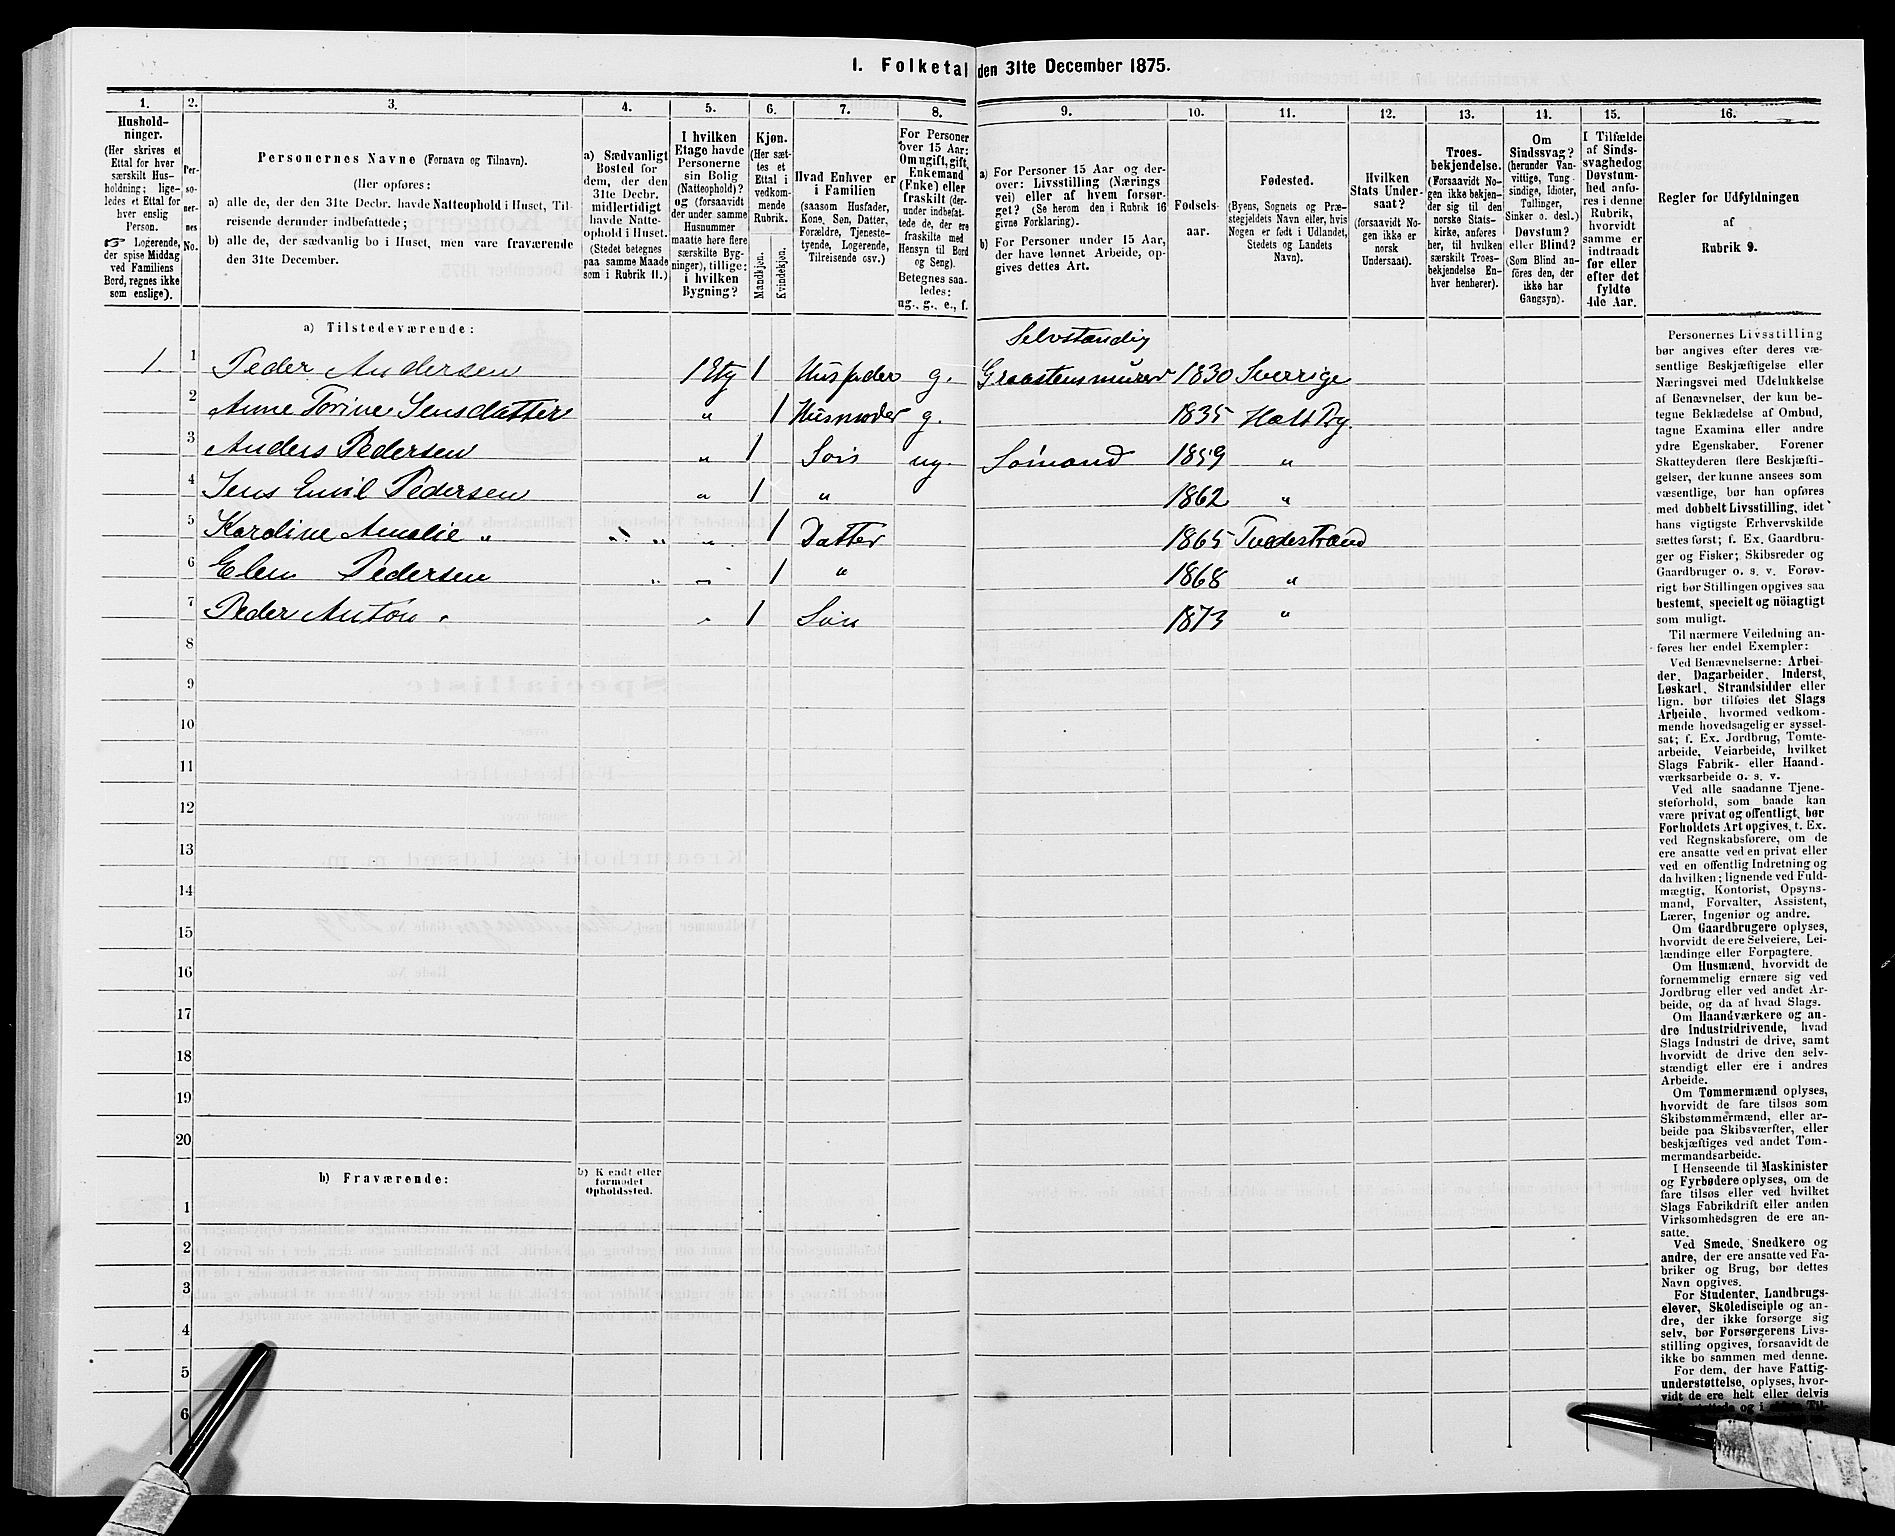 I. Folketal den 31te December 1875.
1. 2. 3. 4. 5. 6. 7. 8. 9. 10. 11. 12. 13. 14. 15. 16.
Hushold-
ninger.
(Her skrives et
Ettal for hver
særskilt Hus-
holdning; lige-
ledes et Ettal for
hver enslig
Person.
☞ Logerende,
der spise Middag
ved Familiens
Bord, regnes ikke
som enslige).
Per-
so-
ner-
nes
No.
Personernes Navne (Fornavn og Tilnavn).
(Her opføres:
a) alle de, der den 31te Decbr. havde Natteophold i Huset, Til-
reisende derunder indbefattede;
b) alle de, der sædvanlig bo i Huset, men vare fraværende
den 31te December.
a) Sædvanligt
Bosted for
dem, der den
31te Decbr.
midlertidigt
havde Natte-
ophold i Huset.
(Stedet betegnes
paa samme Maade
som i Rubrik 11.)
I hvilken
Etage havde
Personerne
sin Bolig
(Natteophold)?
og (forsaavidt
der under samme
Husnummer
maatte høre flere
særskilte Byg-
ninger), tillige:
i hvilken
Bygning?
Kjøn.
(Her sæt-
tes et
Ettal i
vedkom-
mende
Rubrik.
Mandkjøn.
Kvindekjøn.
Hvad Enhver er
i Familien
(saasom Husfader,
Kone, Søn, Datter,
Forældre, Tjeneste-
tyende, Logerende,
Tilreisende osv.)
For Personer
over 15 Aar:
Om ugift, gift,
Enkemand
(Enke) eller
fraskilt (der-
under indbefat-
tede de, der ere
fraskilte med
Hensyn til Bord
og Seng).
Betegnes saa-
ledes:
ug., g., e., f.
a) For Personer 15 Aar og der-
over: Livsstilling (Nærings
vei) eller af hvem forsør-
get? (Se herom den i Rubrik 16
givne Forklaring).
b) For Personer under 15 Aar,
der have lønnet Arbeide, op-
gives dettes Art.
Fødsels-
aar.
Fødested.
(Byens, Sognets og Præ-
stegjeldets Navn eller, hvis
Nogen er født i Udlandet,
Stedets og Landets
Navn).
Hvilken
Stats Under-
saat?
(forsaavidt No-
gen ikke er
norsk
Undersaat).
Troes-
bekjendelse.
(Forsaavidt No-
gen ikke bekjen-
der sig til den
norske Stats-
kirke, anføres
her, til hvilken
særskilt Troes-
bekjendelse En-
hver henhører).
Om
Sindssvag?
(herunder Van-
vittige, Tung-
sindige, Idioter,
Tullinger,
Sinker o. desl.)
Døvstum?
eller Blind?
(Som Blind an-
føres den, der
ikke har
Gangsyn).
I Tilfælde
af Sinds-
svaghed og
Døvstum-
hed anfø-
res i denne
Rubrik,
hvorvidt
samme er
indtraadt
før eller
efter det
fyldte
4de Aar.
Regler for Udfyldningen
af
Rubrik 9.
a) Tilstedeværende:
Selvstændig
1. 1 Peder Andersen 1 Etg 1 Husfader g. Graastensmurer 1830 Sverrige
2 Anne Torine Jensdatter " 1 Husmoder g. 1835 Holt Pg.
3 Anders Pedersen " 1 Søn ug. Sømand 1859 "
4 Jens Emil Pedersen " 1 " 1862 "
5 Karoline Amalie " " " " 1 Datter 1865 Tvedestrand
6 Elen Pedersen " " 1 " 1868 "
7 Peder Anton " " 1 Søn 1873 "
8
9
10
11
12
13
14
15
16
17
18
19
20
b) Fraværende:
b) Kjendt eller
formodet
Opholdssted.
1
2
3
4
5
6
Personernes Livsstilling
bør angives efter deres væ-
sentlige Beskjæftigelse eller
Næringsvei med Udelukkelse
af Benævnelser, der kun be-
tegne Beklædelse af Ombud,
tagne Examina eller andre
ydre Egenskaber. Forener
Skatteyderen flere Beskjæfti-
gelser, der kunne ansees som
væsentlige, bør han opføres
med dobbelt Livsstilling, idet
hans vigtigste Erhvervskilde
sættes først; f. Ex. Gaardbru-
ger og Fisker; Skibsreder og
Gaardbruger o. s. v. Forøv-
rigt bør Stillingen opgives saa
bestemt, specielt og nöiagtigt
som muligt.
Til nærmere Veiledning an-
føres her endel Exempler:
Ved Benævnelserne: Arbei-
der, Dagarbeider, Inderst,
Løskarl, Strandsidder eller
lign. bør tilføies det Slags
Arbeide, hvormed vedkom-
mende hovedsagelig er syssel-
sat; f. Ex. Jordbrug, Tomte-
arbeide, Veiarbeide, hvilket
Slags Fabrik- eller Haand-
værksarbeide o. s. v.
Ved alle saadanne Tjene-
steforhold, som baade kan
være privat og offentligt, bør
Forholdets Art opgives, t. Ex.
ved Regnskabsførere, om de
ere ansatte ved en privat eller
ved en offentlig Indretning og
da hvilken; lignende ved Fuld-
mægtig, Kontorist, Opsyns-
mand, Forvalter, Assistent,
Lærer, Ingeniør og andre.
Om Gaardbrugere oplyses,
hvorvidt de ere Selveiere, Lei-
lændinge eller Forpagtere.
Om Husmænd, hvorvidt de
fornemmelig ernære sig ved
Jordbrug eller ved andet Ar-
beide, og da af hvad Slags.
Om Haandværkere og an-
dre Industridrivende, hvad
Slags Industri de drive, samt
hvorvidt de drive den selv-
stændigt eller ere i andres
Arbeide.
Om Tømmermænd oplyses,
hvorvidt de fare tilsøs som
Skibstømmermænd, eller ar-
beide paa Skibsværfter, eller
beskjæftiges ved andet Tøm-
mermandsarbeide.
I Henseende til Maskinister
og Fyrbødere oplyses, om de
fare tilsøs eller ved hvilket
Slags Fabrikdrift eller anden
Virksomhedsgren de ere an-
satte.
Ved Smede, Snedkere og
andre, der ere ansatte ved Fa-
briker og Brug, bør dettes
Navn opgives.
For Studenter, Landbrugs-
elever, Skoledisciple og an-
dre, der ikke forsørge sig
selv, bør Forsørgerens Livs-
stilling opgives, forsaavidt de
ikke bo sammen med denne.
For dem, der have Fattig-
understøttelse, oplyses, hvor-
vidt de ere helt eller delvis